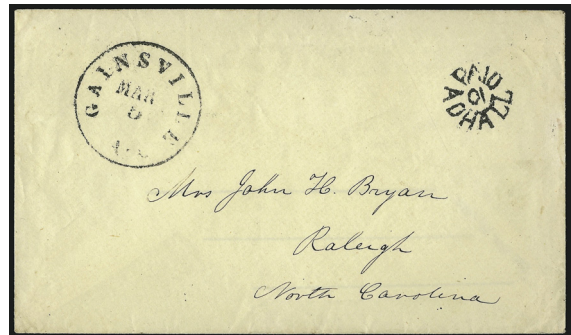 GAINSVILLE
MAR
PAID
10
A D HALL
Mrs John H. Bryan
Raleigh
North Carolina